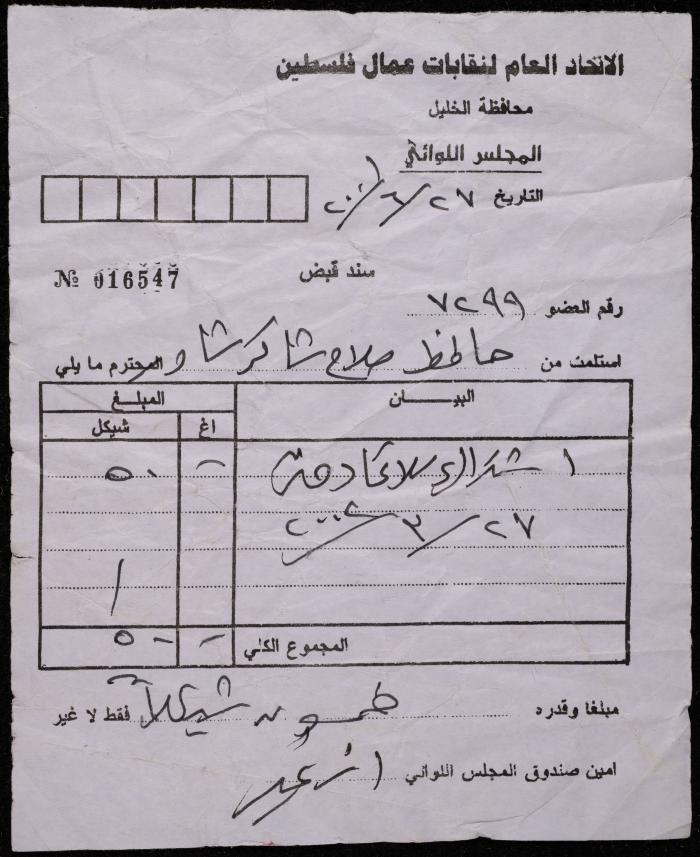 الاتحاد العام لنقابات عمال فلسطين
محافظة الخليل
المجلس اللوائي
التاريخ ٢٧/٦/٢٠٠١
№ 016547
سند قبض
رقم العضو ٧٢٩٩
استلمت من حافظ صلاح شاكر شاور المحترم ما يلي
البيان المبلغ
اغ شيكل
اشتراك ٥٠ -
٢٧/٣/٢٠٠٢
المجموع الكلي - ٥٠
مبلغا وقدره خمسون شيكلاً فقط لا غير
امين صندوق المجلس اللوائي